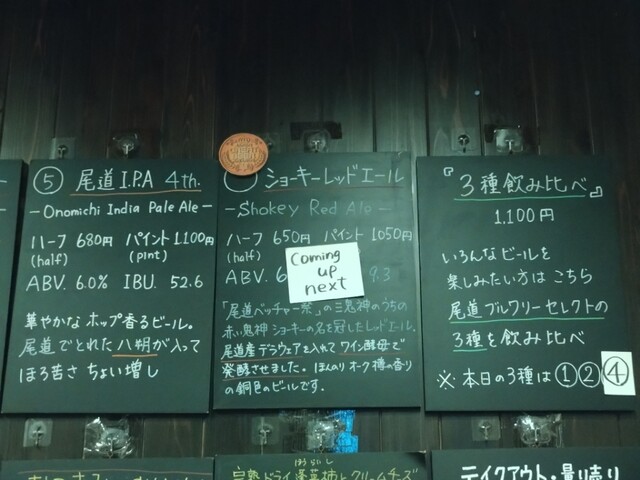 ⑤ 尾道 I.P.A 4th.
- Onomichi India Pale Ale -
ハーフ 680円 パイント 1,100円
(half) (pint)
ABV. 6.0% IBU. 52.6
華やかな ホップ香るビール。
尾道でとれた 八朔が入って
ほろ苦さ ちょい増し
ショーキーレッドエール
- Shokey Red Ale -
ハーフ 650円 パイント 1050円
(half)
Coming
up
next
ABV. 6 9.3
「尾道ベッチャー祭」の三鬼神のうちの
赤い鬼神 ショーキーの名を冠したレッドエール。
尾道産デラウェアを入れて ワイン酵母で
発酵させました。ほんのり オーク樽の香り
の銅色のビールです。
『3種飲み比べ』
1,100円
いろんなビールを
楽しみたい方は こちら
尾道ブルワリーセレクトの
3種を飲み比べ
※ 本日の3種は ① ② ④
完熟ドライ蓬莱柿とクリームチーズ
テイクアウト・量り売り